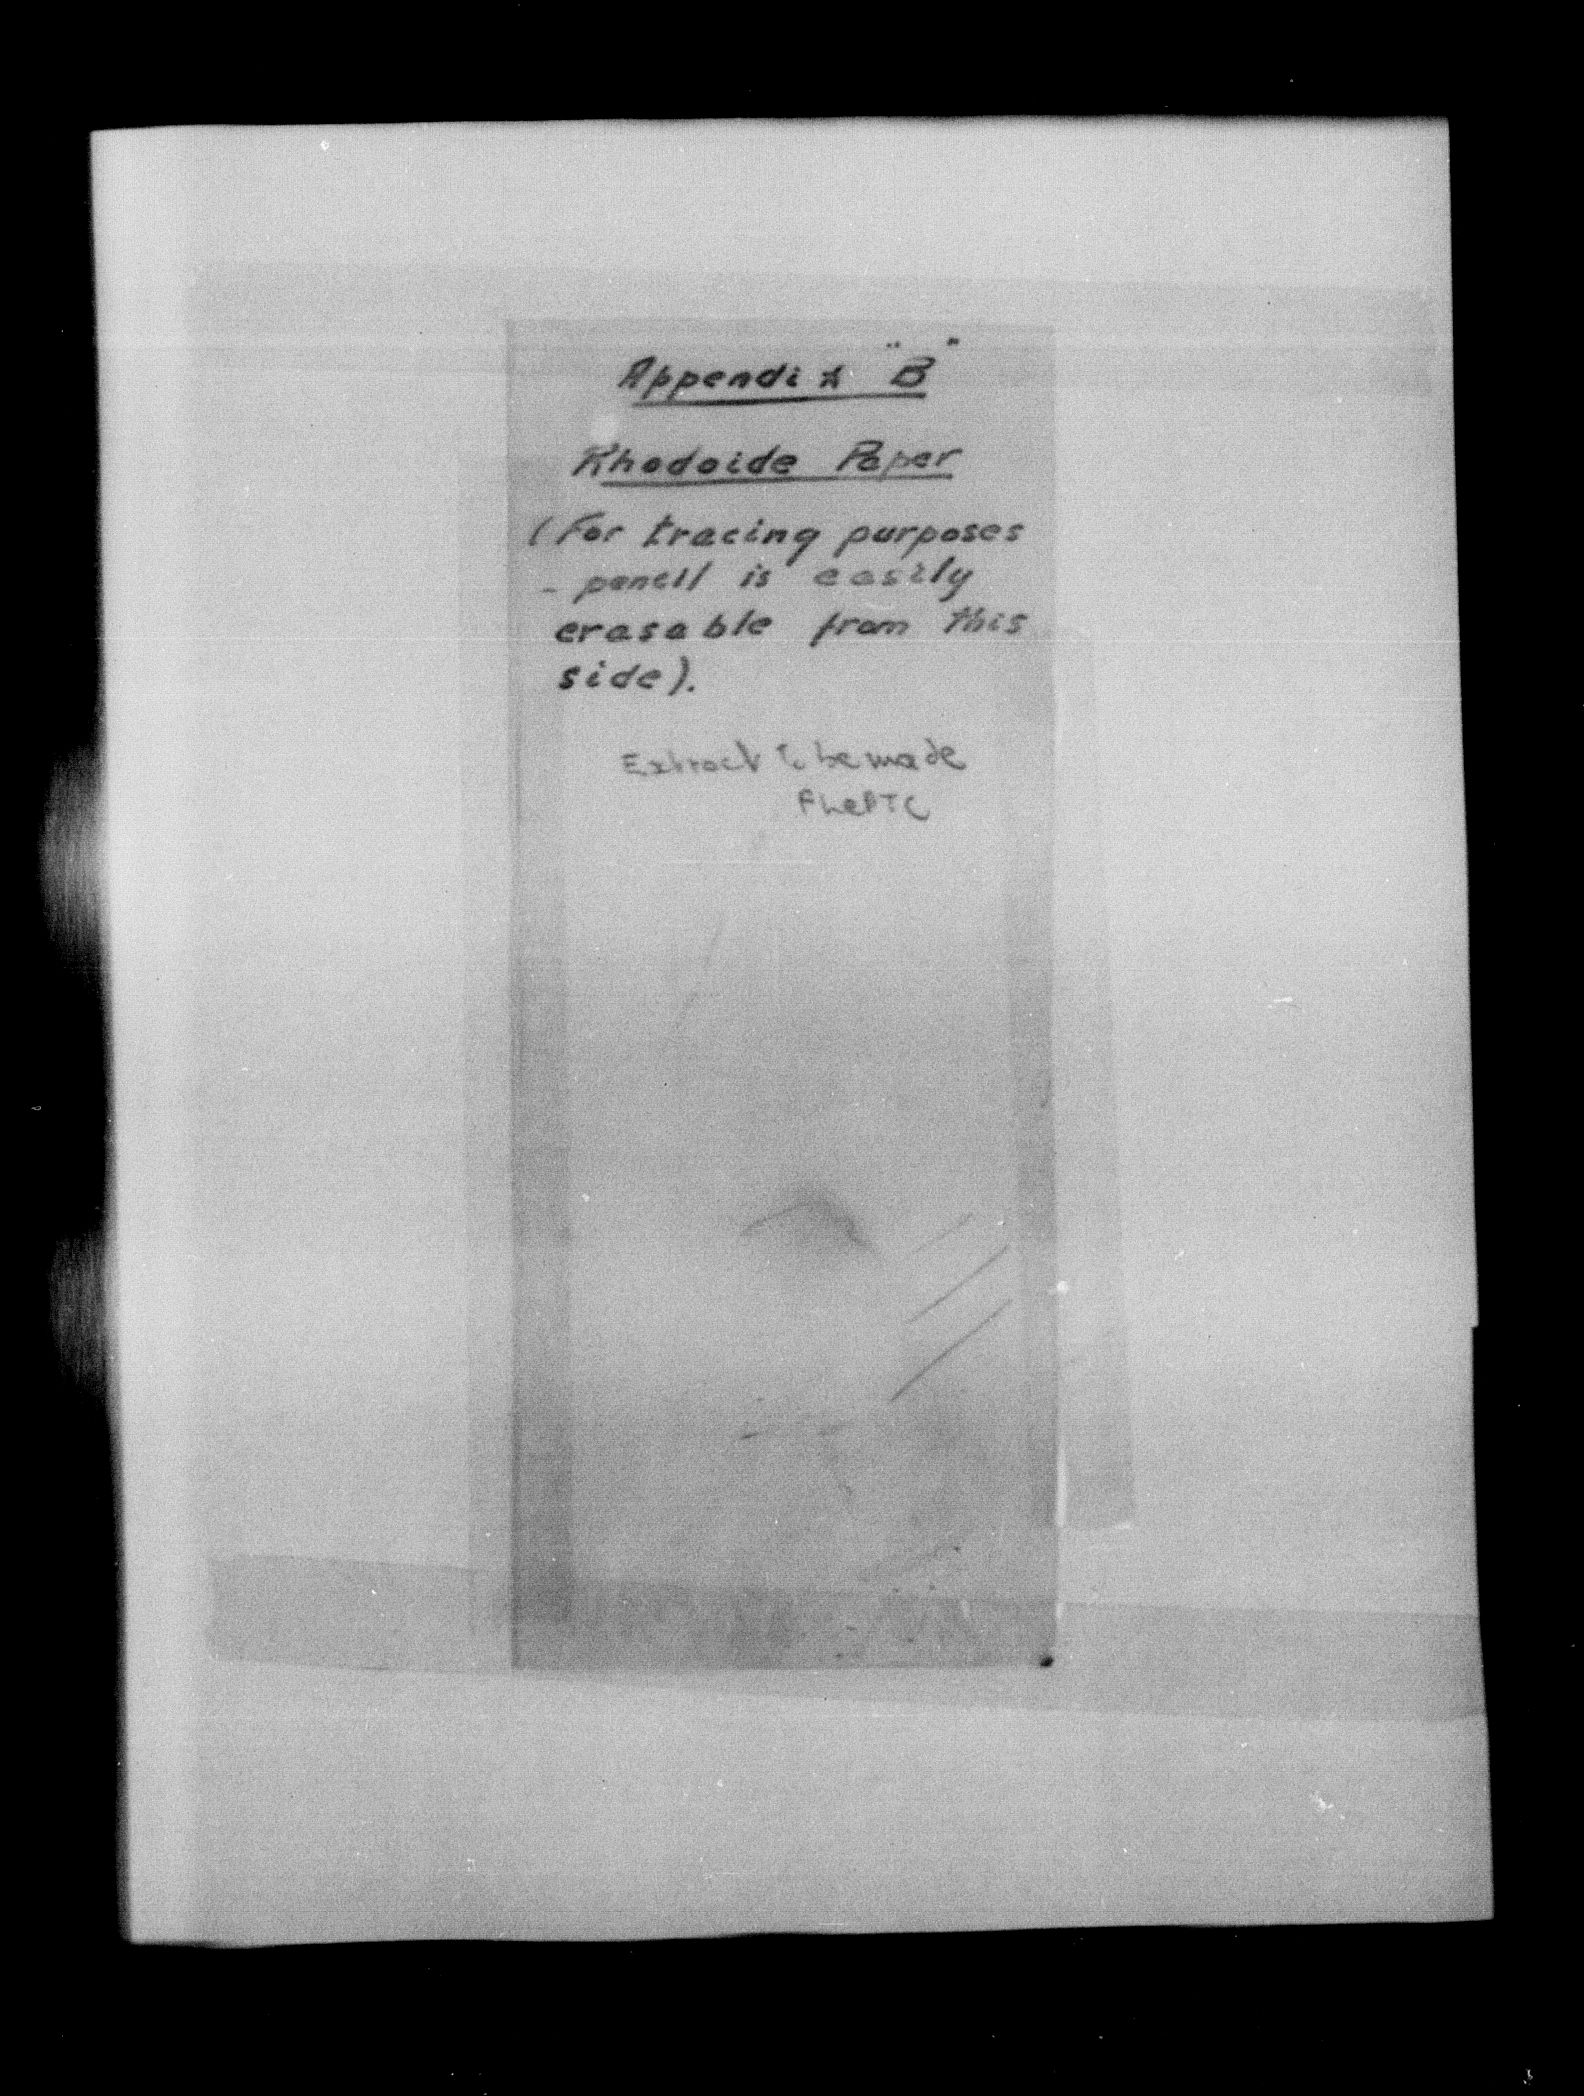 Appendix "B"
Rhodoide Paper
(For tracing purposes
- pencil is easily
erasable from this
side).
Extract to be made